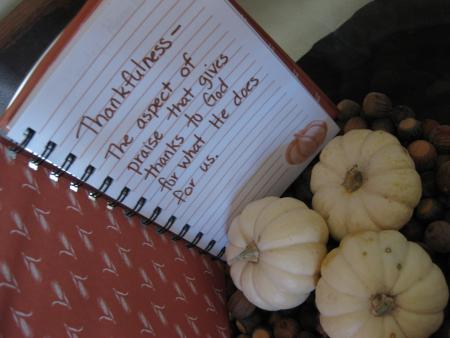 Thankfulness-
The aspect of
praise that gives
thanks to God
for what He does
for us.